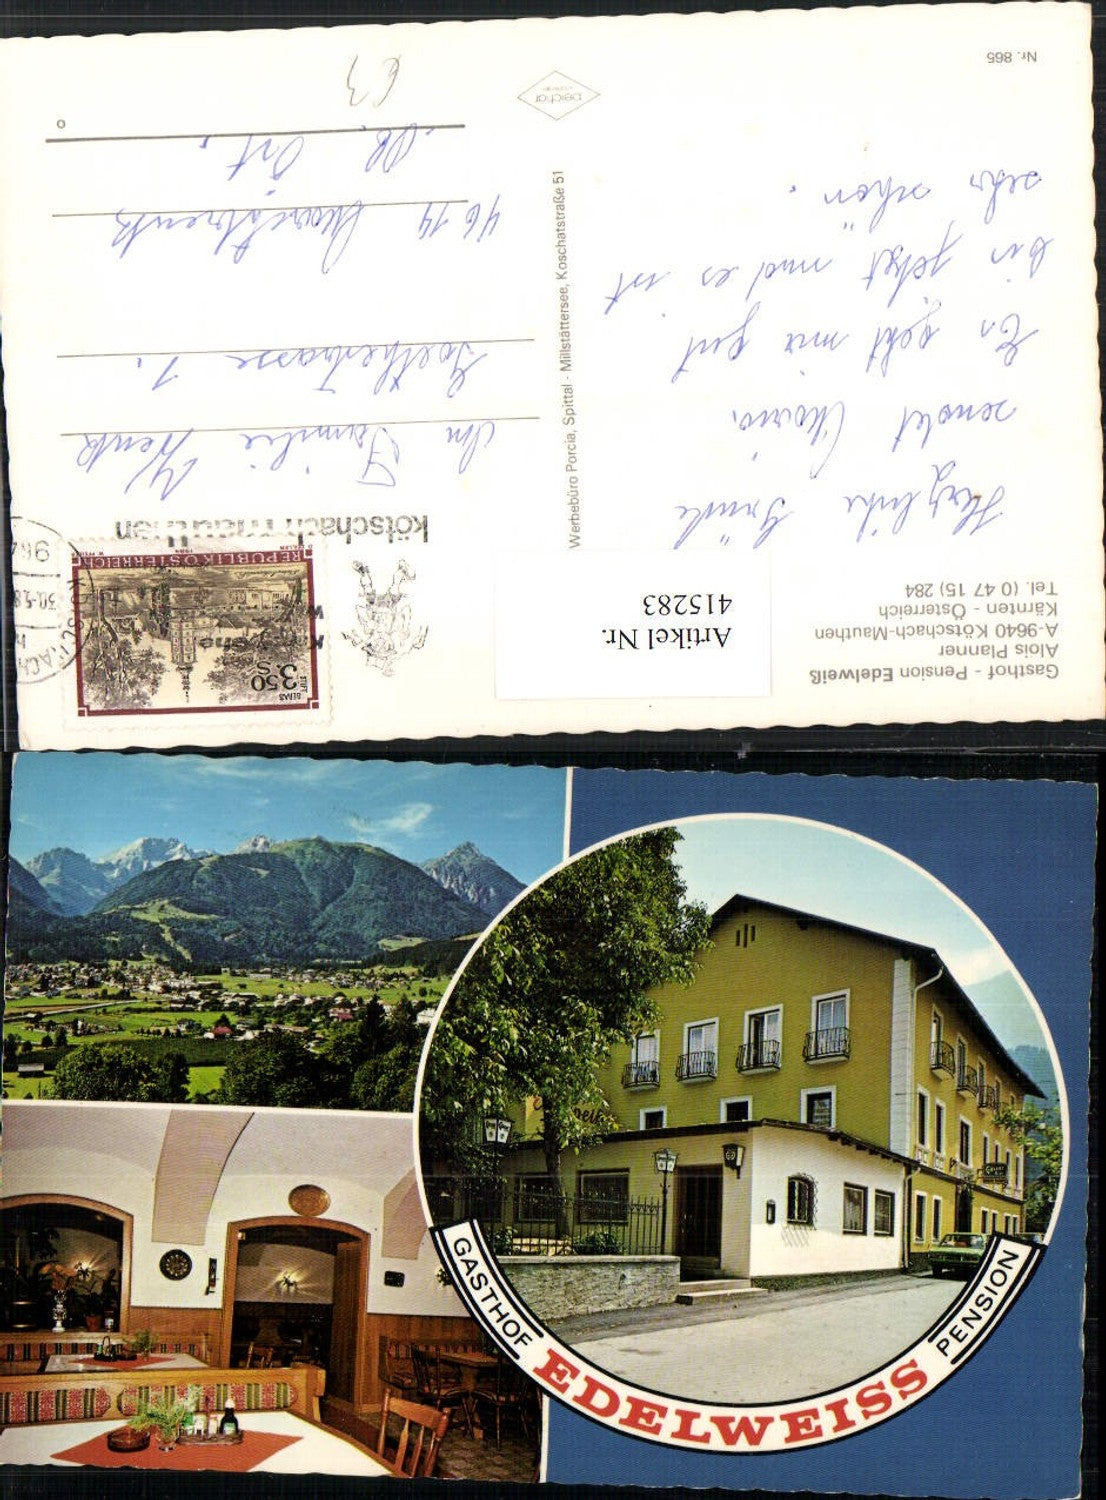 Gasthof - Pension Edelweiß
Alois Planner
A-9640 Kötschach-Mauthen
Kärnten - Österreich
Tel. (0 47 15) 284
Artikel Nr.
415283
Herzliche Grüße
sendet Maria.
Es geht mir gut
bin jetzt und es ist
sehr schön.
Nr. 865
Werbebüro Porcia, Spittal - Millstättersee, Koschatstraße 51
kötschach mauthen
STIFT
GERAS
3.50
S
REPUBLIK ÖSTERREICH
An Familie
Goethestrasse 1.
4614 Marchtrenk
Ob. Öst.
€3
GASTHOF
EDELWEISS
PENSION